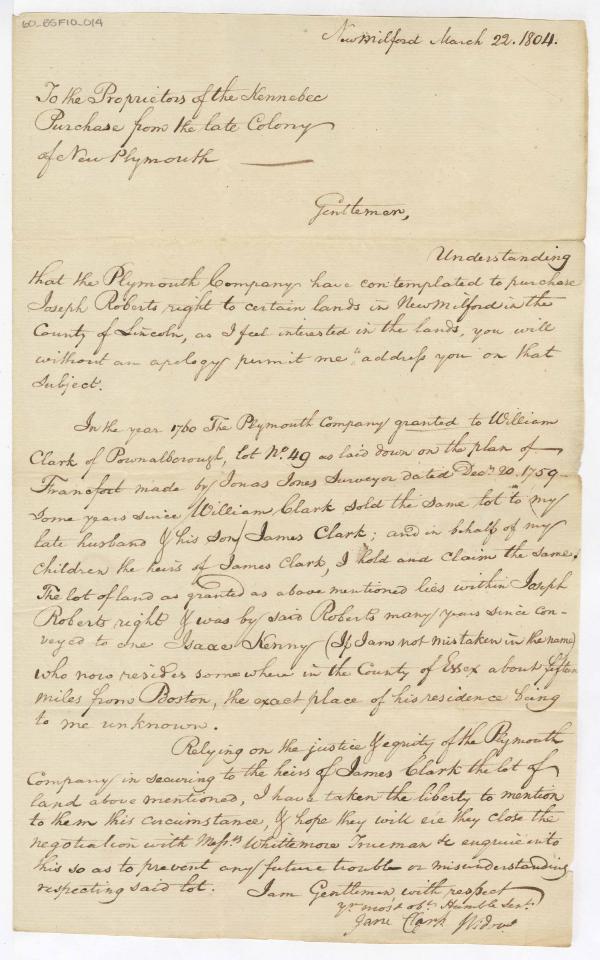 60_BSF10_014
New Milford March 22. 1804.
To the Proprietors of the Kennebec
Purchase from the late Colony
of New Plymouth
Gentlemen,
Understanding
that the Plymouth Company have contemplated to purchase
Joseph Roberts right to certain lands in New Milford in the
County of Lincoln, as I feel interested in the lands, you will
without an apology permit me to address you on that
subject.
In the year 1760 The Plymouth Company granted to William
Clark of Pownalborough, lot No. 49 as laid down on the plan of
Francfort made by Jonas Jones Surveyor dated Decr. 20. 1759
some years since William Clark sold the same lot to my
late husband & his son James Clark; and in behalf of my
children the heirs of James Clark, I hold and claim the same.
The lot of land as granted as above mentioned lies within Joseph
Roberts right & was by said Roberts many years since con-
veyed to one Isaac Kenny (If I am not mistaken in the name)
who now resides somewhere in the County of Essex about fifteen
miles from Boston, the exact place of his residence being
to me unknown.
Relying on the justice & equity of the Plymouth
Company in securing to the heirs of James Clark the lot of
land above mentioned, I have taken the liberty to mention
to them this circumstance, & hope they will ere they close the
negotiation with Messrs Whittemore Trueman &c enquire into
this so as to prevent any future trouble or misunderstanding
respecting said lot. I am Gentlemen with respect
yr. most obt. Humble Sert.
Jane Clark Widow